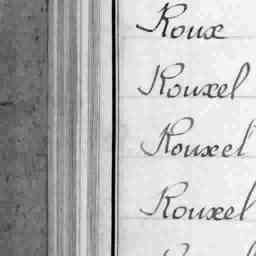 Roux
Rouxel
Rouxel
Rouxel